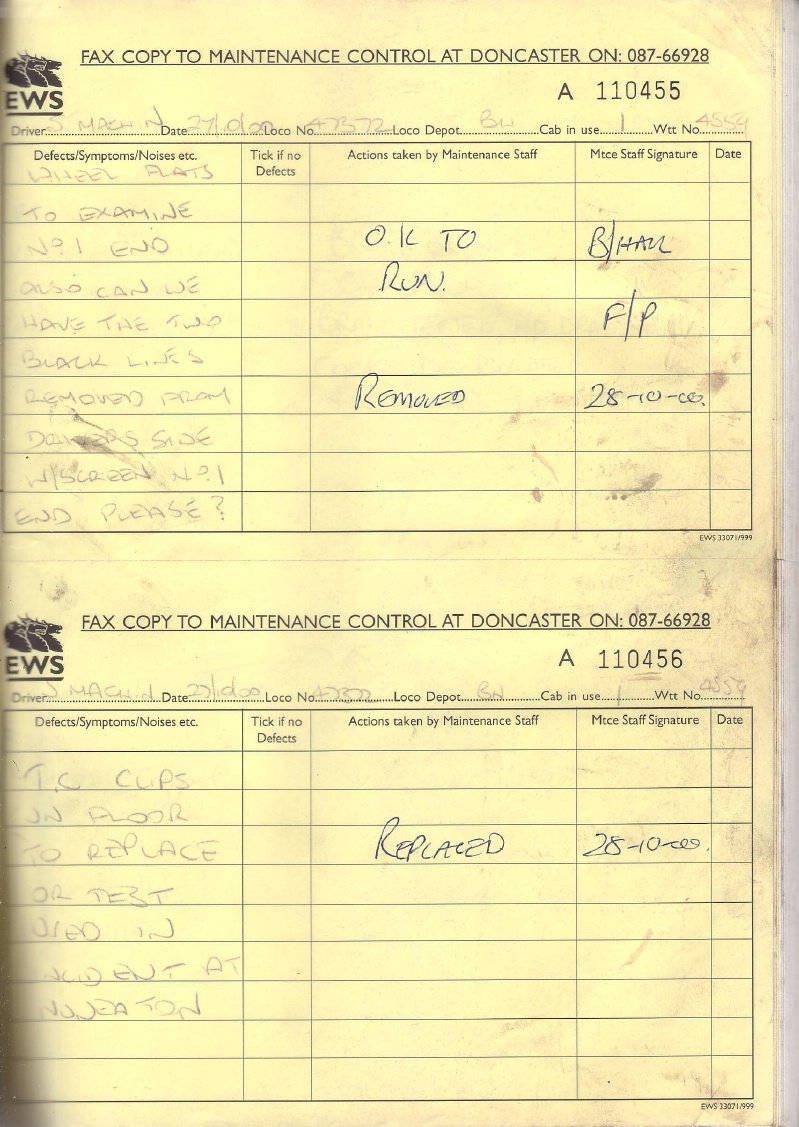 FAX COPY TO MAINTENANCE CONTROL AT DONCASTER ON: 087-66928
EWS
A 110455
Driver S MACHIN Date 27/10/00 Loco No. 47372 Loco Depot BH Cab in use 1 Wtt No. 4S54
Defects/Symptoms/Noises etc. Tick if no Defects Actions taken by Maintenance Staff Mtce Staff Signature Date
WHEEL FLATS
TO EXAMINE
No. 1 END O.K TO B/HALL
ALSO CAN WE RUN.
HAVE THE TWO F/P
BLACK LINES
REMOVED FROM REMOVED 28-10-00.
DRIVERS SIDE
W/SCREEN No. 1
END PLEASE?
EWS 33071/999
FAX COPY TO MAINTENANCE CONTROL AT DONCASTER ON: 087-66928
EWS
A 110456
Driver S MACHIN Date 27/10/00 Loco No. 47372 Loco Depot BH Cab in use 1 Wtt No. 4S54
Defects/Symptoms/Noises etc. Tick if no Defects Actions taken by Maintenance Staff Mtce Staff Signature Date
T.C CLIPS
IN FLOOR
TO REPLACE REPLACED 28-10-00.
OR TEST
USED IN
INCIDENT AT
NUNEATON
EWS 33071/999